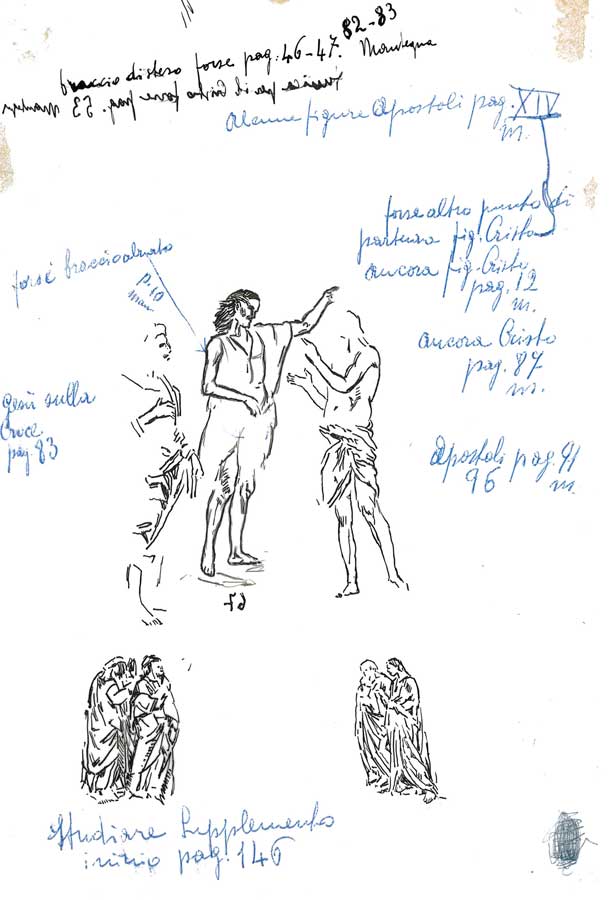 82-83
braccio disteso forse pag. 46-47. Mantegna
forse pag. 53
alcune figure Apostoli pag. XIV
m.
forse altro punto di
partenza fig. Cristo
ancora fig. Cristo
pag. 12
m.
ancora Cristo
pag. 87
m.
Apostoli pag. 91
96 m.
forse braccio alzato
p. 10
man
Gesù sulla
Croce
pag. 83
Studiare Supplemento
inizio pag. 146